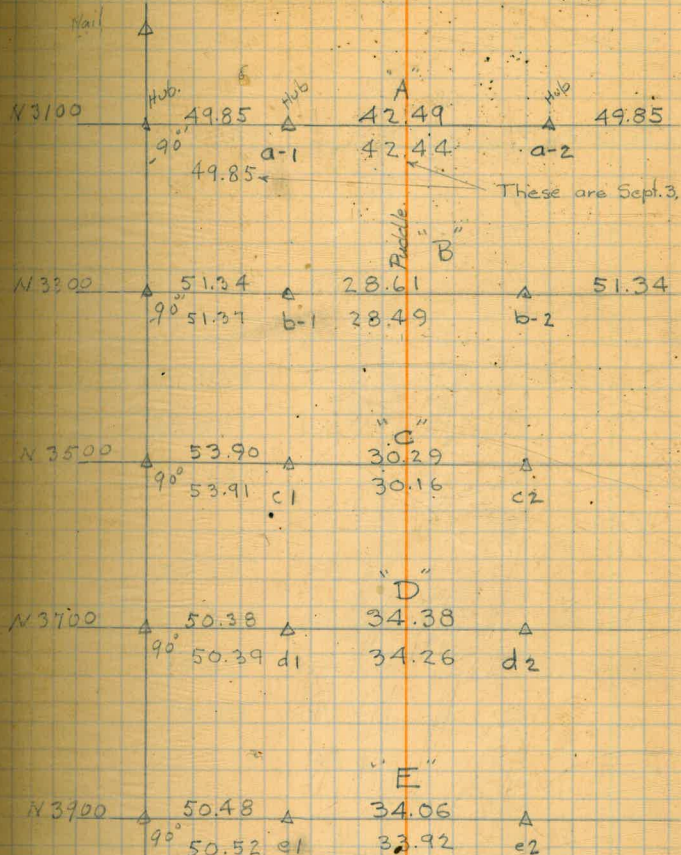 Nail
Hub. Hub "A" Hub
N 3100 49.85 42.49 49.85
90° a-1 42.44 a-2
49.85
These are Sept. 3,
Puddle "B"
N 3300 51.34 28.61 51.34
90° 51.37 b-1 28.49 b-2
"C"
N 3500 53.90 30.29
90° 53.91 c1 30.16 c2
"D"
N 3700 50.38 34.38
90° 50.39 d1 34.26 d2
"E"
N 3900 50.48 34.06
90° 50.52 e1 33.92 e2